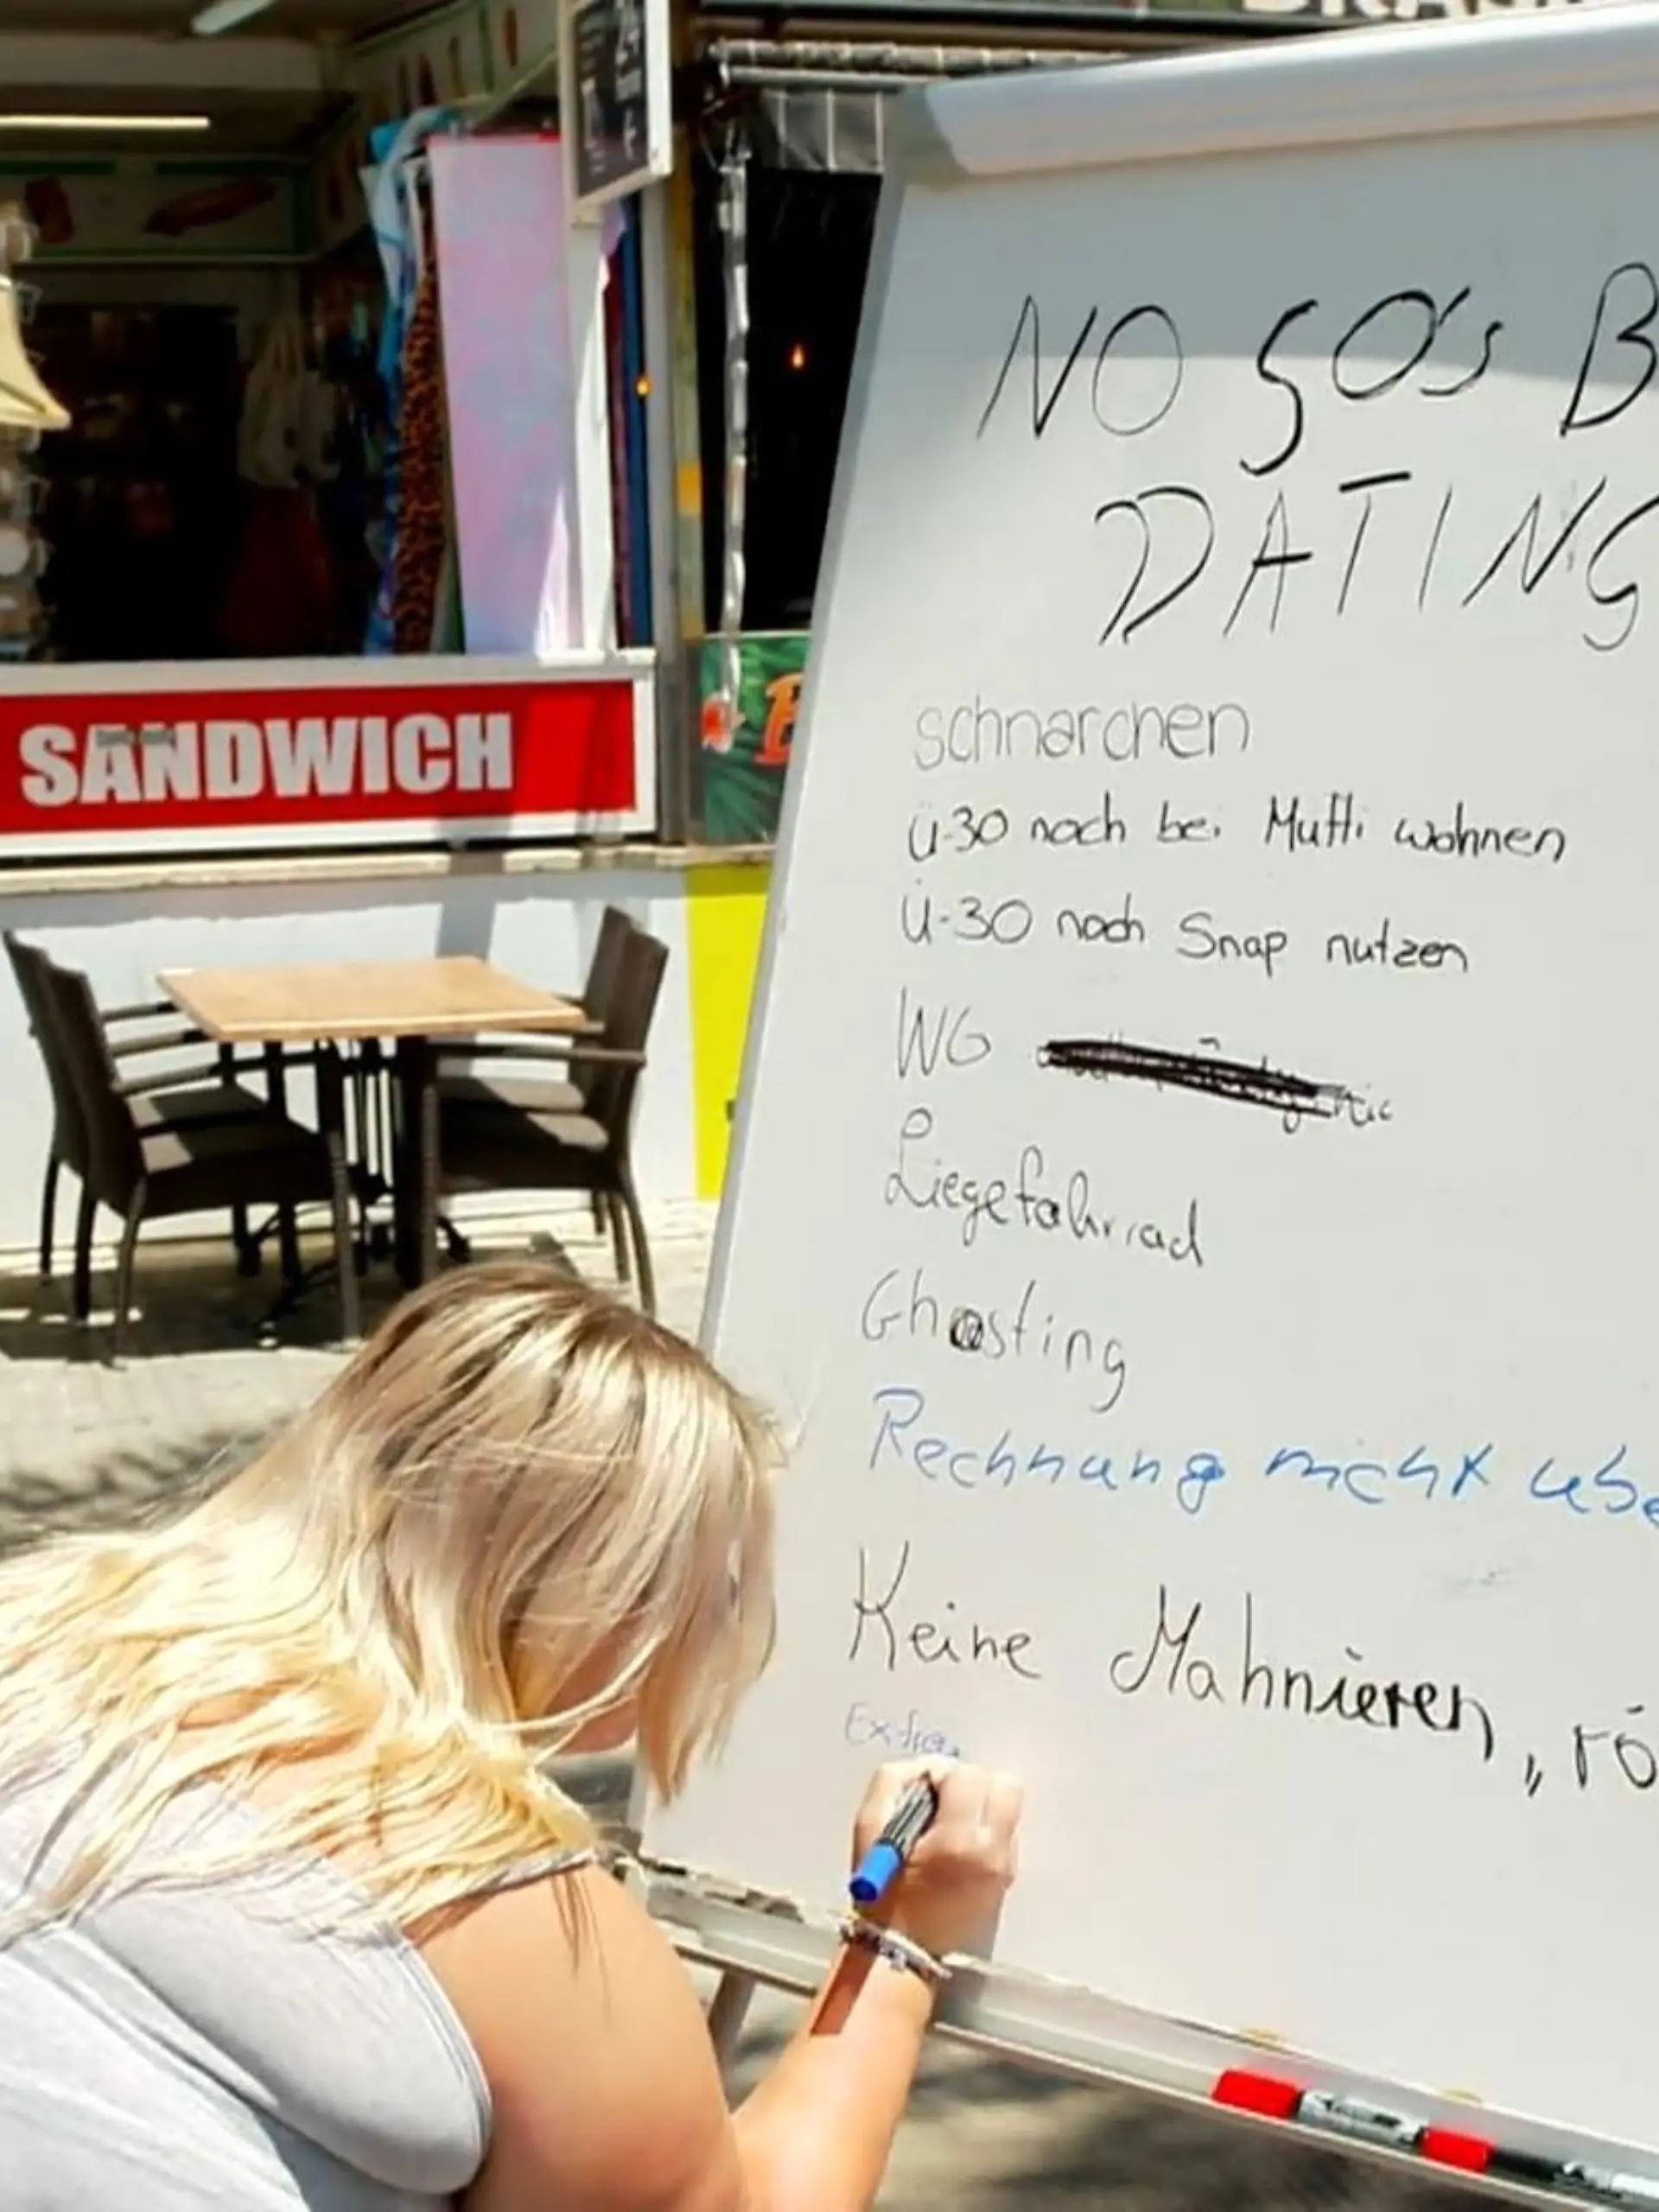 NO GO's B
DATING
SANDWICH
schnarchen
Ü-30 noch bei Mutti wohnen
Ü-30 noch Snap nutzen
WG
Liegefahrrad
Ghosting
Rechnung nicht übe
Keine Mahnieren, „rö